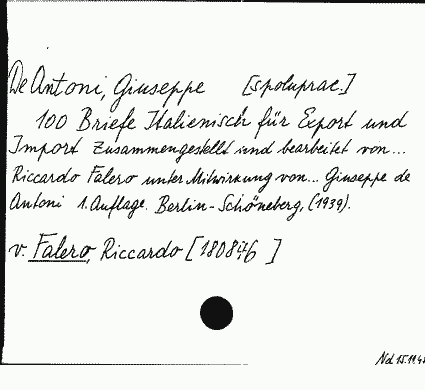 De Antoni, Giuseppe [spoluprac.]
100 Briefe Italienisch für Export und
Import zusammengestellt und bearbeitet von...
Riccardo Falero unter Mitwirkung von... Giuseppe de
Antoni 1. Auflage. Berlin-Schöneberg, (1939).
v. Falero, Riccardo [180846 ]
Nd 15.11.48